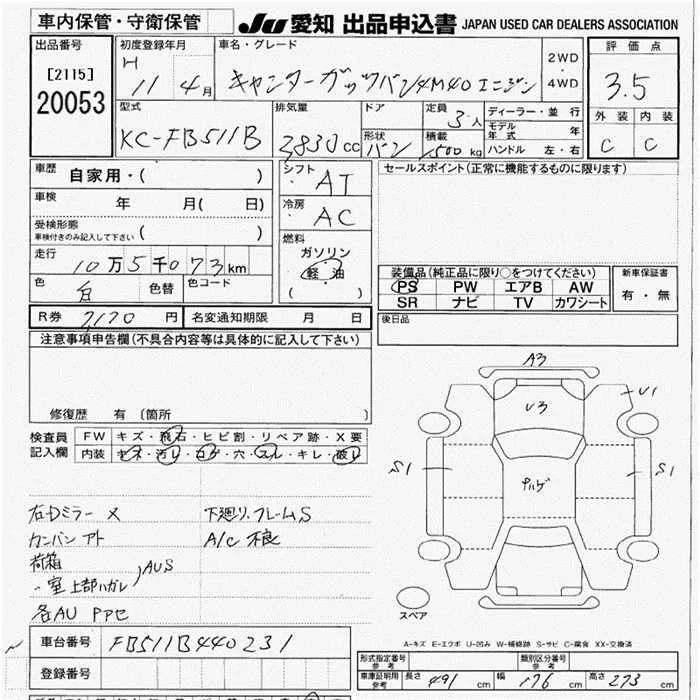 車内保管・守衛保管 JU 愛知 出品申込書 JAPAN USED CAR DEALERS ASSOCIATION
出品番号 初度登録年月 車名・グレード 2WD ・ 4WD 評価点
[2115] H 11 4月 キャンターガッツバン4M40エンジン 3.5
20053 型式 排気量 ドア 定員 3人 ディーラー・並行 外装 内装
KC-FB511B 2,830cc 形状 バン 積載 1,500kg モデル年式 年 C C
ハンドル 左・右
車歴 自家用・( ) シフト AT セールスポイント(正常に機能するものに限ります)
車検 年 月( 日) 冷房 AC
受検形態
車検付きのみ記入して下さい 燃料
走行 10万5千073km ガソリン
色 白 色替 色コード 軽油 装備品(純正品に限り○をつけてください) 新車保証書
( ) PS PW エアB AW 有・無
SR ナビ TV カワシート
R券 7170円 名変通知期限 月 日 後日品
注意事項申告欄(不具合内容等は具体的に記入して下さい)
修復歴 有(箇所 )
検査員 FW キズ・飛石・ヒビ割・リペア跡・X要
記入欄 内装 キズ・汚レ・コゲ・穴・スレ・キレ・破レ
A3
U1
U3
S1 S1
ナルゲ
右Dミラー X 下廻り、フレームS
カンバンアト A/C 不良
荷箱
室上部ハガレ AUS
各AU PPセ
スペア
A-キズ E-エクボ U-凹み W-補修跡 S-サビ C-腐食 XX-交換済
車台番号 FB511B440231
形式指定番号 参考 類別区分番号 参考
登録番号 車庫証明用 参考 長さ 491cm 幅 176cm 高さ 273cm